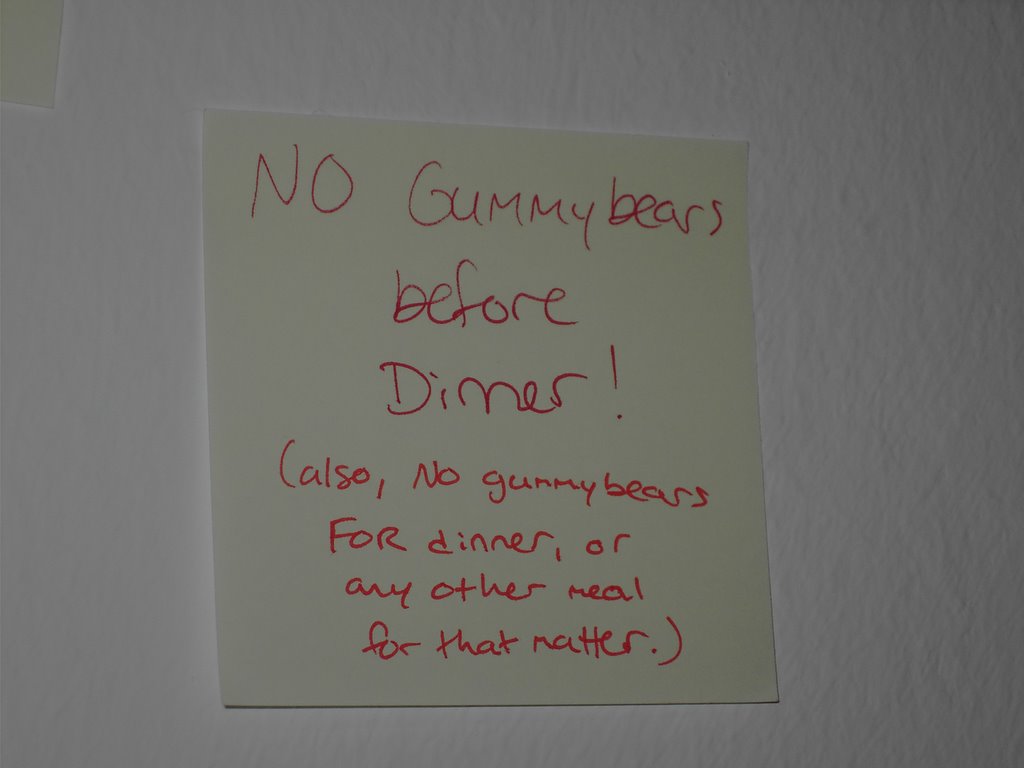 NO Gummybears
before
Dinner!
(also, No gummybears
FOR dinner, or
any other meal
for that matter.)